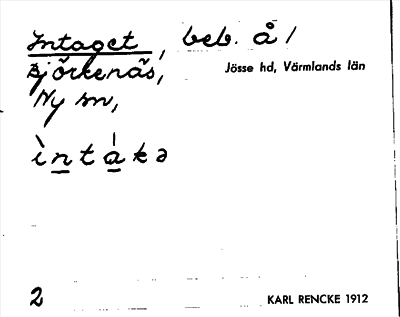 Intaget, beb. å /
Björkenäs,
Jösse hd, Värmlands län
Ny sn,
ìntákə
2
KARL RENCKE 1912